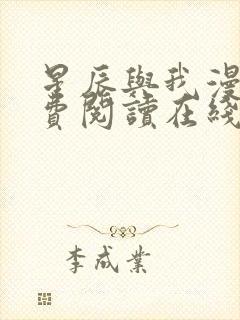 星辰與我漫
費閱讀在綫
李成業